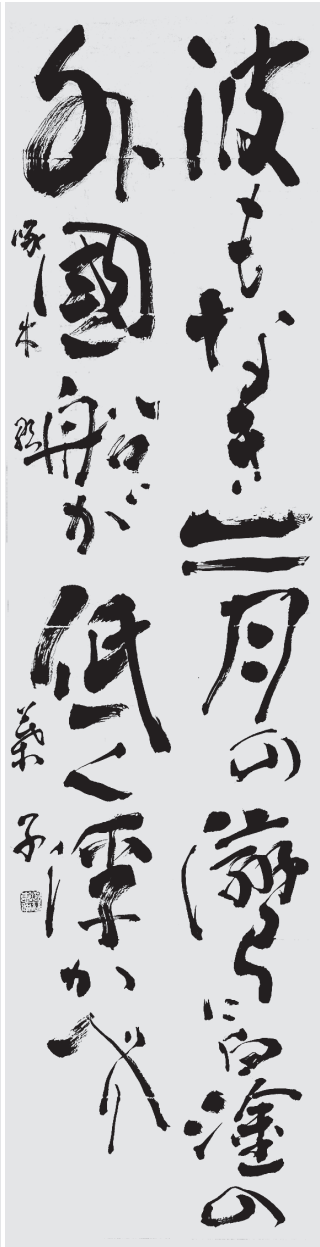 波もなき二月の灣に白塗の
外國船が低く浮かべり
啄木歌 葉子